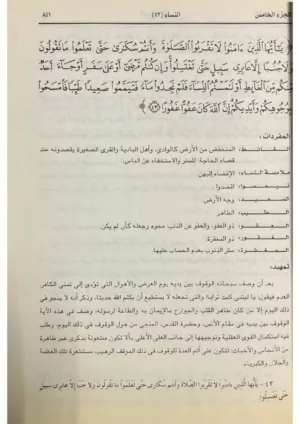 الجزء الخامس
النساء (٤٣)
٨٥١
﴿ يَٰٓأَيُّهَا ٱلَّذِينَ ءَامَنُوا۟ لَا تَقْرَبُوا۟ ٱلصَّلَوٰةَ وَأَنتُمْ سُكَٰرَىٰ حَتَّىٰ تَعْلَمُوا۟ مَا تَقُولُونَ
وَلَا جُنُبًا إِلَّا عَابِرِى سَبِيلٍ حَتَّىٰ تَغْتَسِلُوا۟ وَإِن كُنتُم مَّرْضَىٰٓ أَوْ عَلَىٰ سَفَرٍ أَوْ جَآءَ أَحَدٌ
مِّنكُم مِّنَ ٱلْغَآئِطِ أَوْ لَٰمَسْتُمُ ٱلنِّسَآءَ فَلَمْ تَجِدُوا۟ مَآءً فَتَيَمَّمُوا۟ صَعِيدًا طَيِّبًا فَٱمْسَحُوا۟
بِوُجُوهِكُمْ وَأَيْدِيكُمْ إِنَّ ٱللَّهَ كَانَ عَفُوًّا غَفُورًا ﴿٤٣﴾
المفردات:
الـغـــائـــط: المنخفض من الأرض كالوادى، وأهل البادية والقرى الصغيرة يقصدونه عند
قضاء الحاجة؛ للستر والاستخفاء عن الناس.
ملامسة النساء: الإفضاء إليهن.
تـيـمـمـوا: اقصدوا.
الصعيد: وجه الأرض.
الـطـيـب: الطاهر.
الـعـفـو: ذو العفو، والعفو عن الذنب: محوه وجعله كأن لم يكن.
الغفور: ذو المغفرة.
المغفرة: ستر الذنوب بعدم الحساب عليها.
تمهيد:
بعد أن وصف سبحانه الوقوف بين يديه يوم العرض والأهوال التي تؤدى إلى تمنى الكافر
العدم فيقول: يا ليتنى كنت ترابا، والتى تجعله لا يستطيع أن يكتم الله حديثا، وذكر أنه لا ينجو فى
ذلك اليوم إلا من كان طاهر القلب والجوارح بالإيمان به والطاعة لرسوله، وصف فى هذه الآية
الوقوف بين يديه فى مقام الأنس، وحضرة القدس، المنجى من هول الوقوف فى ذلك اليوم، وطلب
فيه استكمال القوى العقلية وتوجيهها إلى جانب العلى الأعلى بألا تكون مشغولة بذكرى غير طاهرة
من الأنجاس والأخباث؛ لتكون على أتم العدة للوقوف فى ذلك الموقف الرهيب، مستشعرة تلك العظمة
والجلال والكبرياء.
٤٣ - يٰأَيُّهَا الَّذِينَ آمَنُوا لَا تَقْرَبُوا الصَّلَاةَ وَأَنتُمْ سُكَارَىٰ حَتَّىٰ تَعْلَمُوا مَا تَقُولُونَ وَلَا جُنُبًا إِلَّا عَابِرِي سَبِيلٍ
حَتَّىٰ تَغْتَسِلُوا...